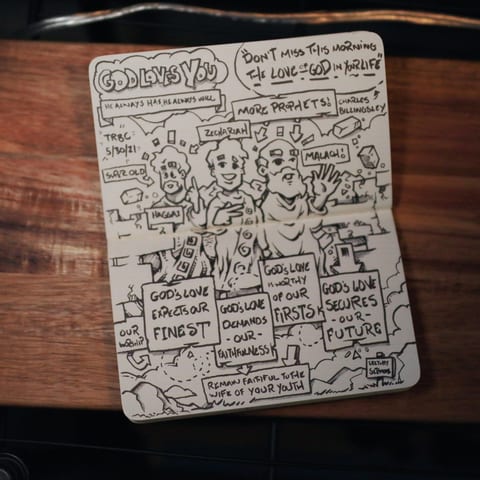 GOD LOVES YOU
HE ALWAYS HAS HE ALWAYS WILL
"DON'T MISS THIS MORNING
THE LOVE OF GOD IN YOUR LIFE"
MORE PROPHETS!
CHARLES
BILLINGSLEY
TRBC
5/30/21
ZECHARIAH
MALACHI
SUPER OLD
HAGGAI
GOD'S LOVE
EXPECTS OUR
FINEST
GOD'S LOVE
DEMANDS
- OUR -
FAITHFULNESS
GOD'S LOVE
IS WORTHY
OF OUR
FIRSTS
GOD'S LOVE
SECURES
- OUR -
FUTURE
OUR
WORSHIP
REMAIN FAITHFUL TO THE
WIFE OF YOUR YOUTH
SERMONS